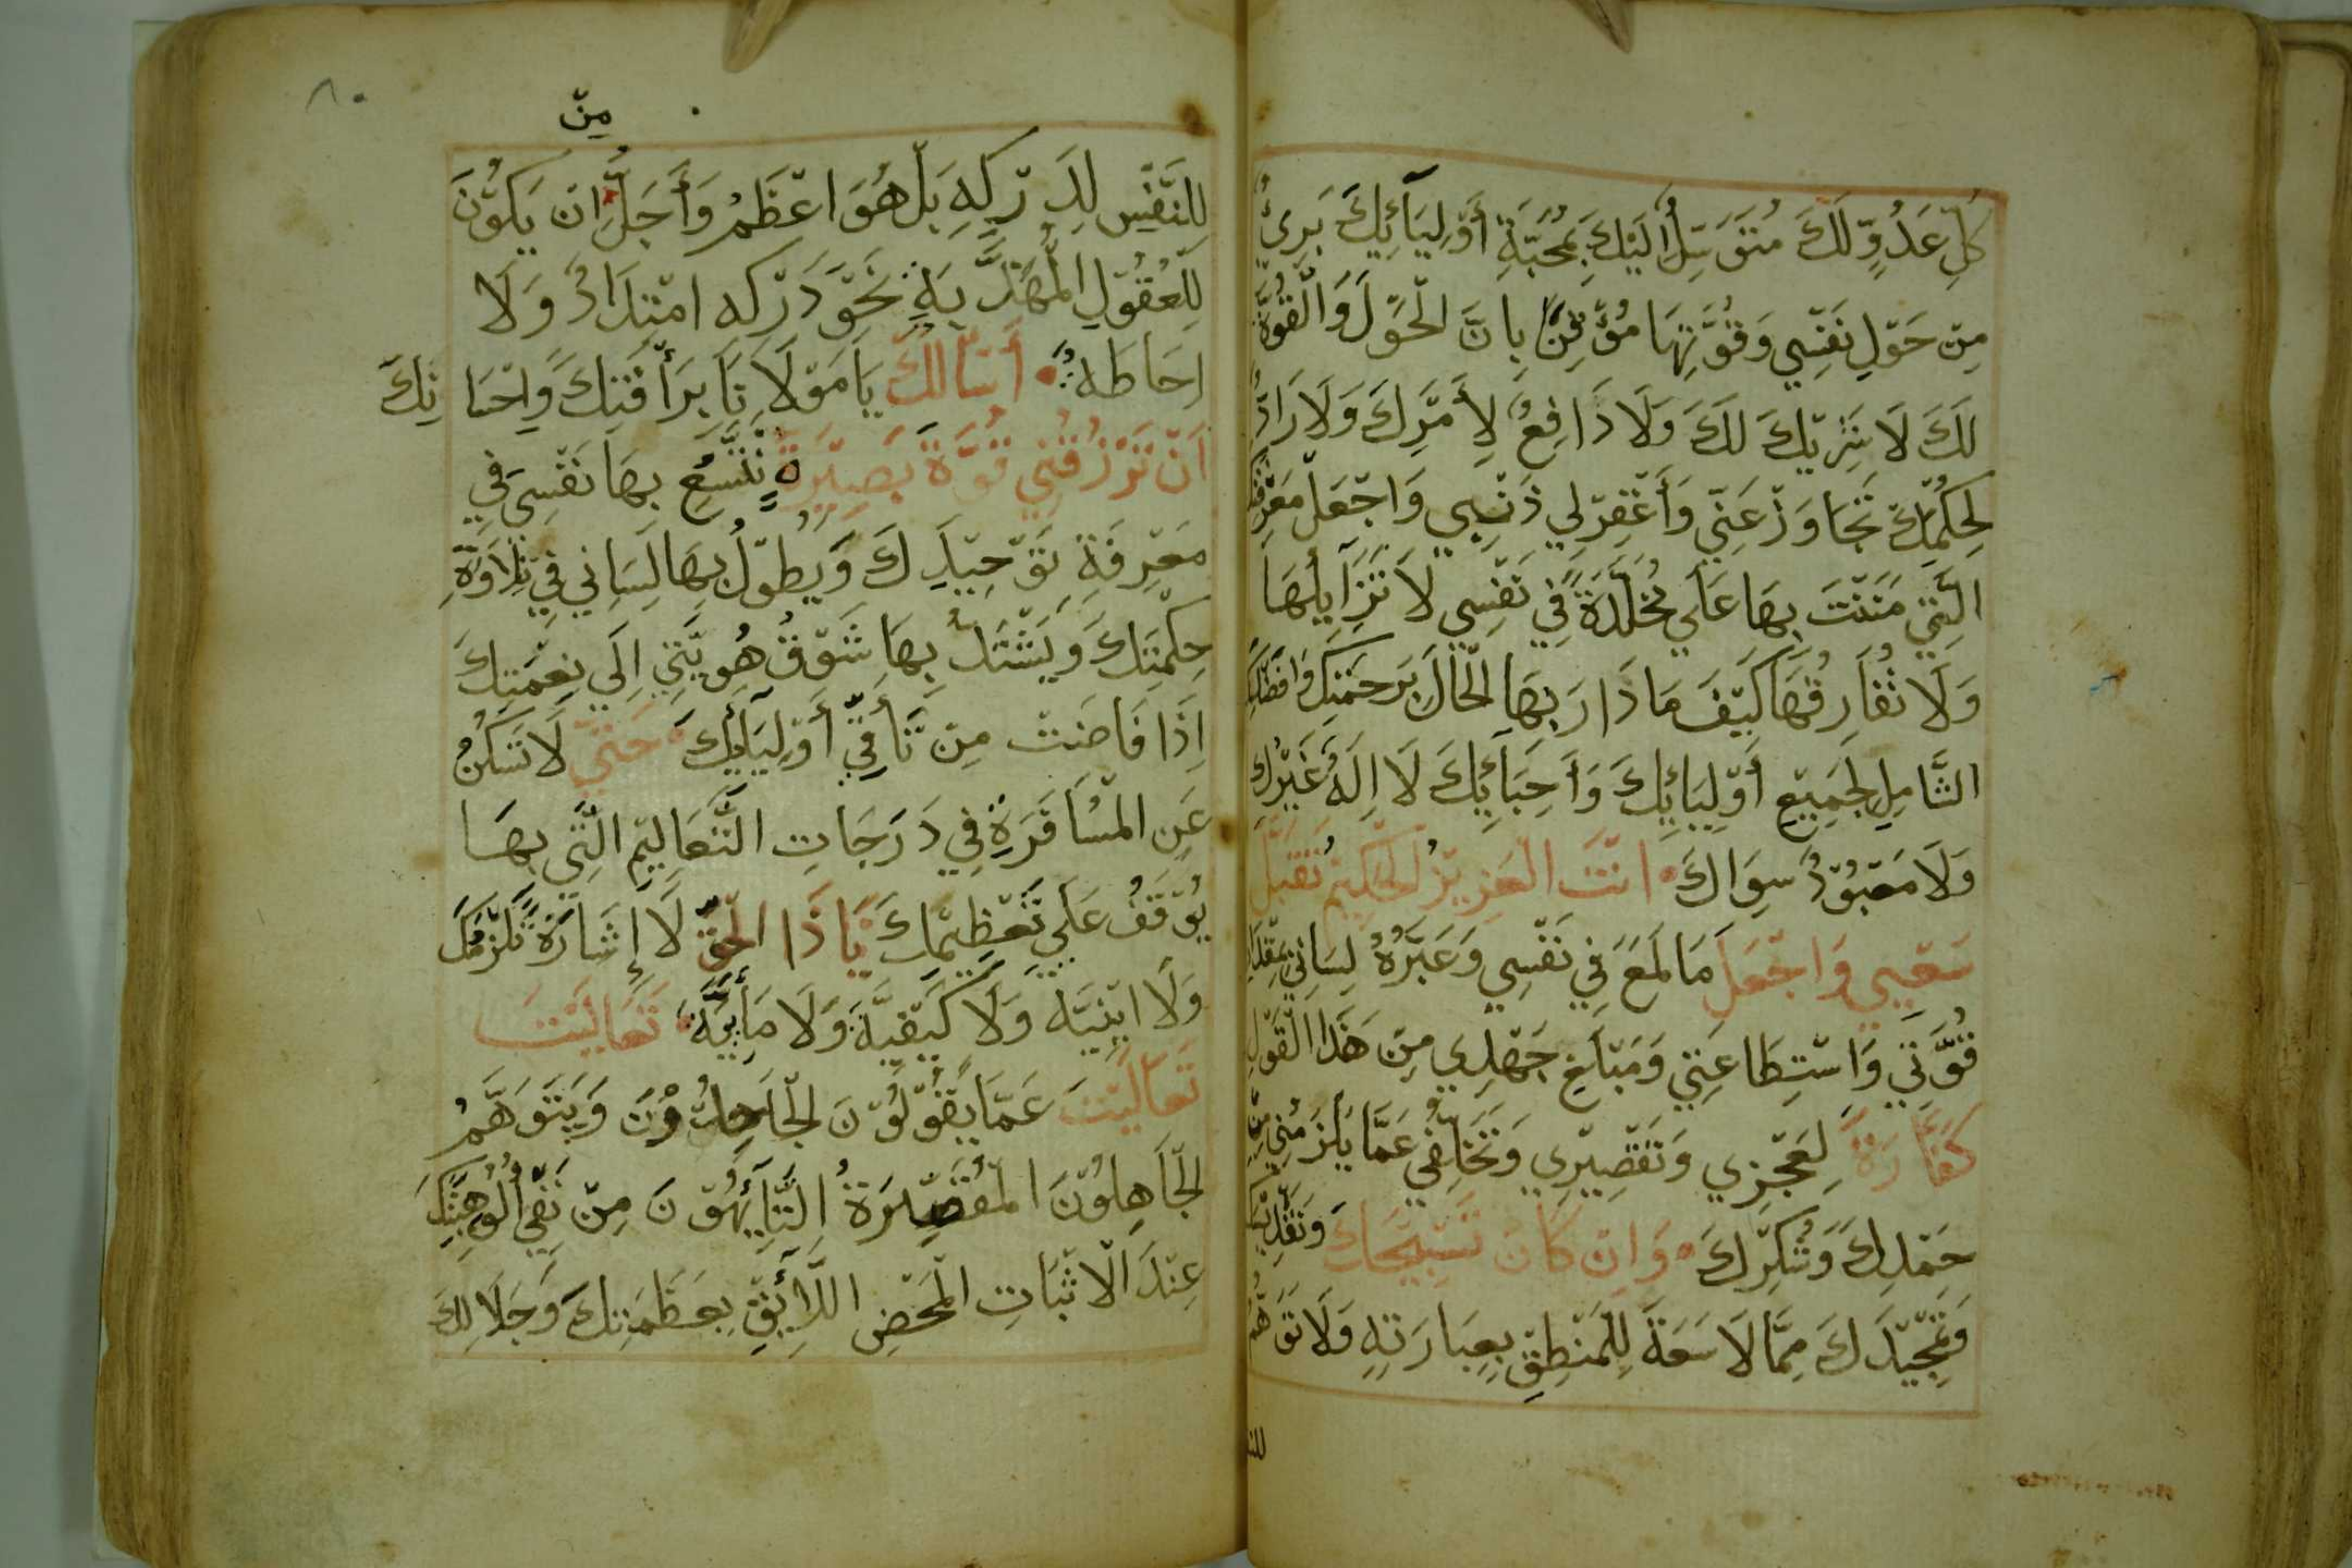 كُلِّ عَدُوٍّ لَكَ مُتَوَسِّلٌ اِلَيْكَ بِمَحَبَّةِ أَوْلِيَآئِكَ بَرِيءٌ
مِنْ حَوْلِ نَفْسِي وَقُوَّتِهَا مُوْقِنٌ بِاَنَّ الْحَوْلَ وَالْقُوَّةَ
لَكَ لَا شَرِيْكَ لَكَ وَلَا دَافِعٌ لِأَمْرِكَ وَلَا رَادٌّ
لِحُكْمِكَ تَجَاوَزْ عَنِّي وَأَغْفِرْ لِي ذَنْبِي وَاجْعَلْ مَعْرِفَتَكَ
الَّتِي مَنَنْتَ بِهَا عَلَي مُخَلَّدَةً فِي نَفْسِي لَا تُزَايِلُهَا
وَلَا تُفَارِقُهَا كَيْفَ مَا دَارَ بِهَا الْحَالُ بِرَحْمَتِكَ وَافْضَالِكَ
الشَّامِلِ لِجَمِيْعِ أَوْلِيَائِكَ وَأَحِبَّائِكَ لَا اِلَهَ غَيْرُكَ
وَلَا مَعْبُوْدٌ سِوَاكَ اَنْتَ الْعَزِيْزُ الْحَكِيْمُ تَقَبَّلْ
سَعْيِي وَاجْعَلْ مَا لَمَعَ فِي نَفْسِي وَعَبَّرَهُ لِسَانِي بِمِقْدَارِ
قُوَّتِي وَاسْتِطَاعَتِي وَمَبْلَغِ جَهْدِي مِنْ هَذَا الْقَوْلِ
كَفَّارَةً لِعَجْزِي وَتَقْصِيْرِي وَتَخَلُّفِي عَمَّا يَلْزَمُنِي مِنْ
حَمْدِكَ وَشُكْرِكَ وَاِنْ كَانَ تَسْبِيْحَكَ وَتَقْدِيْسَكَ
وَتَمْجِيْدَكَ مِمَّا لَا سَعَةَ لِلْمَنْطِقِ بِعِبَارَتِهِ وَلَا تَوَهُّمَ
للنفس
٨٠
مِنْ
لِلنَّفْسِ لِدَرْكِهِ بَلْ هُوَ اَعْظَمُ وَأَجَلُّ اَنْ يَكُوْنَ
لِلْعُقُوْلِ الْمُهَذَّبَةِ نَحْوَ دَرْكِه امْتِدَادٌ وَلَا
اِحَاطَة أَسْأَلُكَ يَا مَوْلَانَا بِرَأْفَتِكَ وَاِحْسَانِكَ
اَنْ تَرْزُقَنِي قُوَّةً بَصِيْرَةً تَتَّسِعُ بِهَا نَفْسِي فِي
مَعْرِفَةِ تَوْحِيْدِكَ وَيُطَوِّلُ بِهَا لِسَانِي فِي تِلَاوَةِ
حِكْمَتِكَ وَيَشْتَدُّ بِهَا شَوْقُ هُوِيَّتِي اِلَي نِعْمَتِكَ
اِذَا فَاضَتْ مِنْ تَأَفِّي أَوْلِيَائِكَ حَتَّي لَا تَسْكُنُ
عَنِ الْمُسَافَرَةِ فِي دَرَجَاتِ التَّعَالِيْمِ الَّتِي بِهَا
يُوْقَفُ عَلَي تَعْظِيْمِكَ يَا ذَا الْحَقِّ لَا إِشَارَةً تَلْزَمُكَ
وَلَا اَيْنِيَّة وَلَا كَيْفِيَّة وَلَا مَائِيَّة تَعَالَيْتَ
تَعَالَيْتَ عَمَّا يَقُوْلُوْنَ الْجَاحِدُوْنَ وَيَتَوَهَّمُ
الْجَاهِلُوْنَ الْمُقَصِّرَةُ التَّائِهُوْنَ مِنْ نَفْي أُلُوْهِيَّتِكَ
عِنْدَ الْاَثْبَاتِ الْمَحْضِ اللَّائِقِ بِعَظَمَتِكَ وَجَلَالِكَ